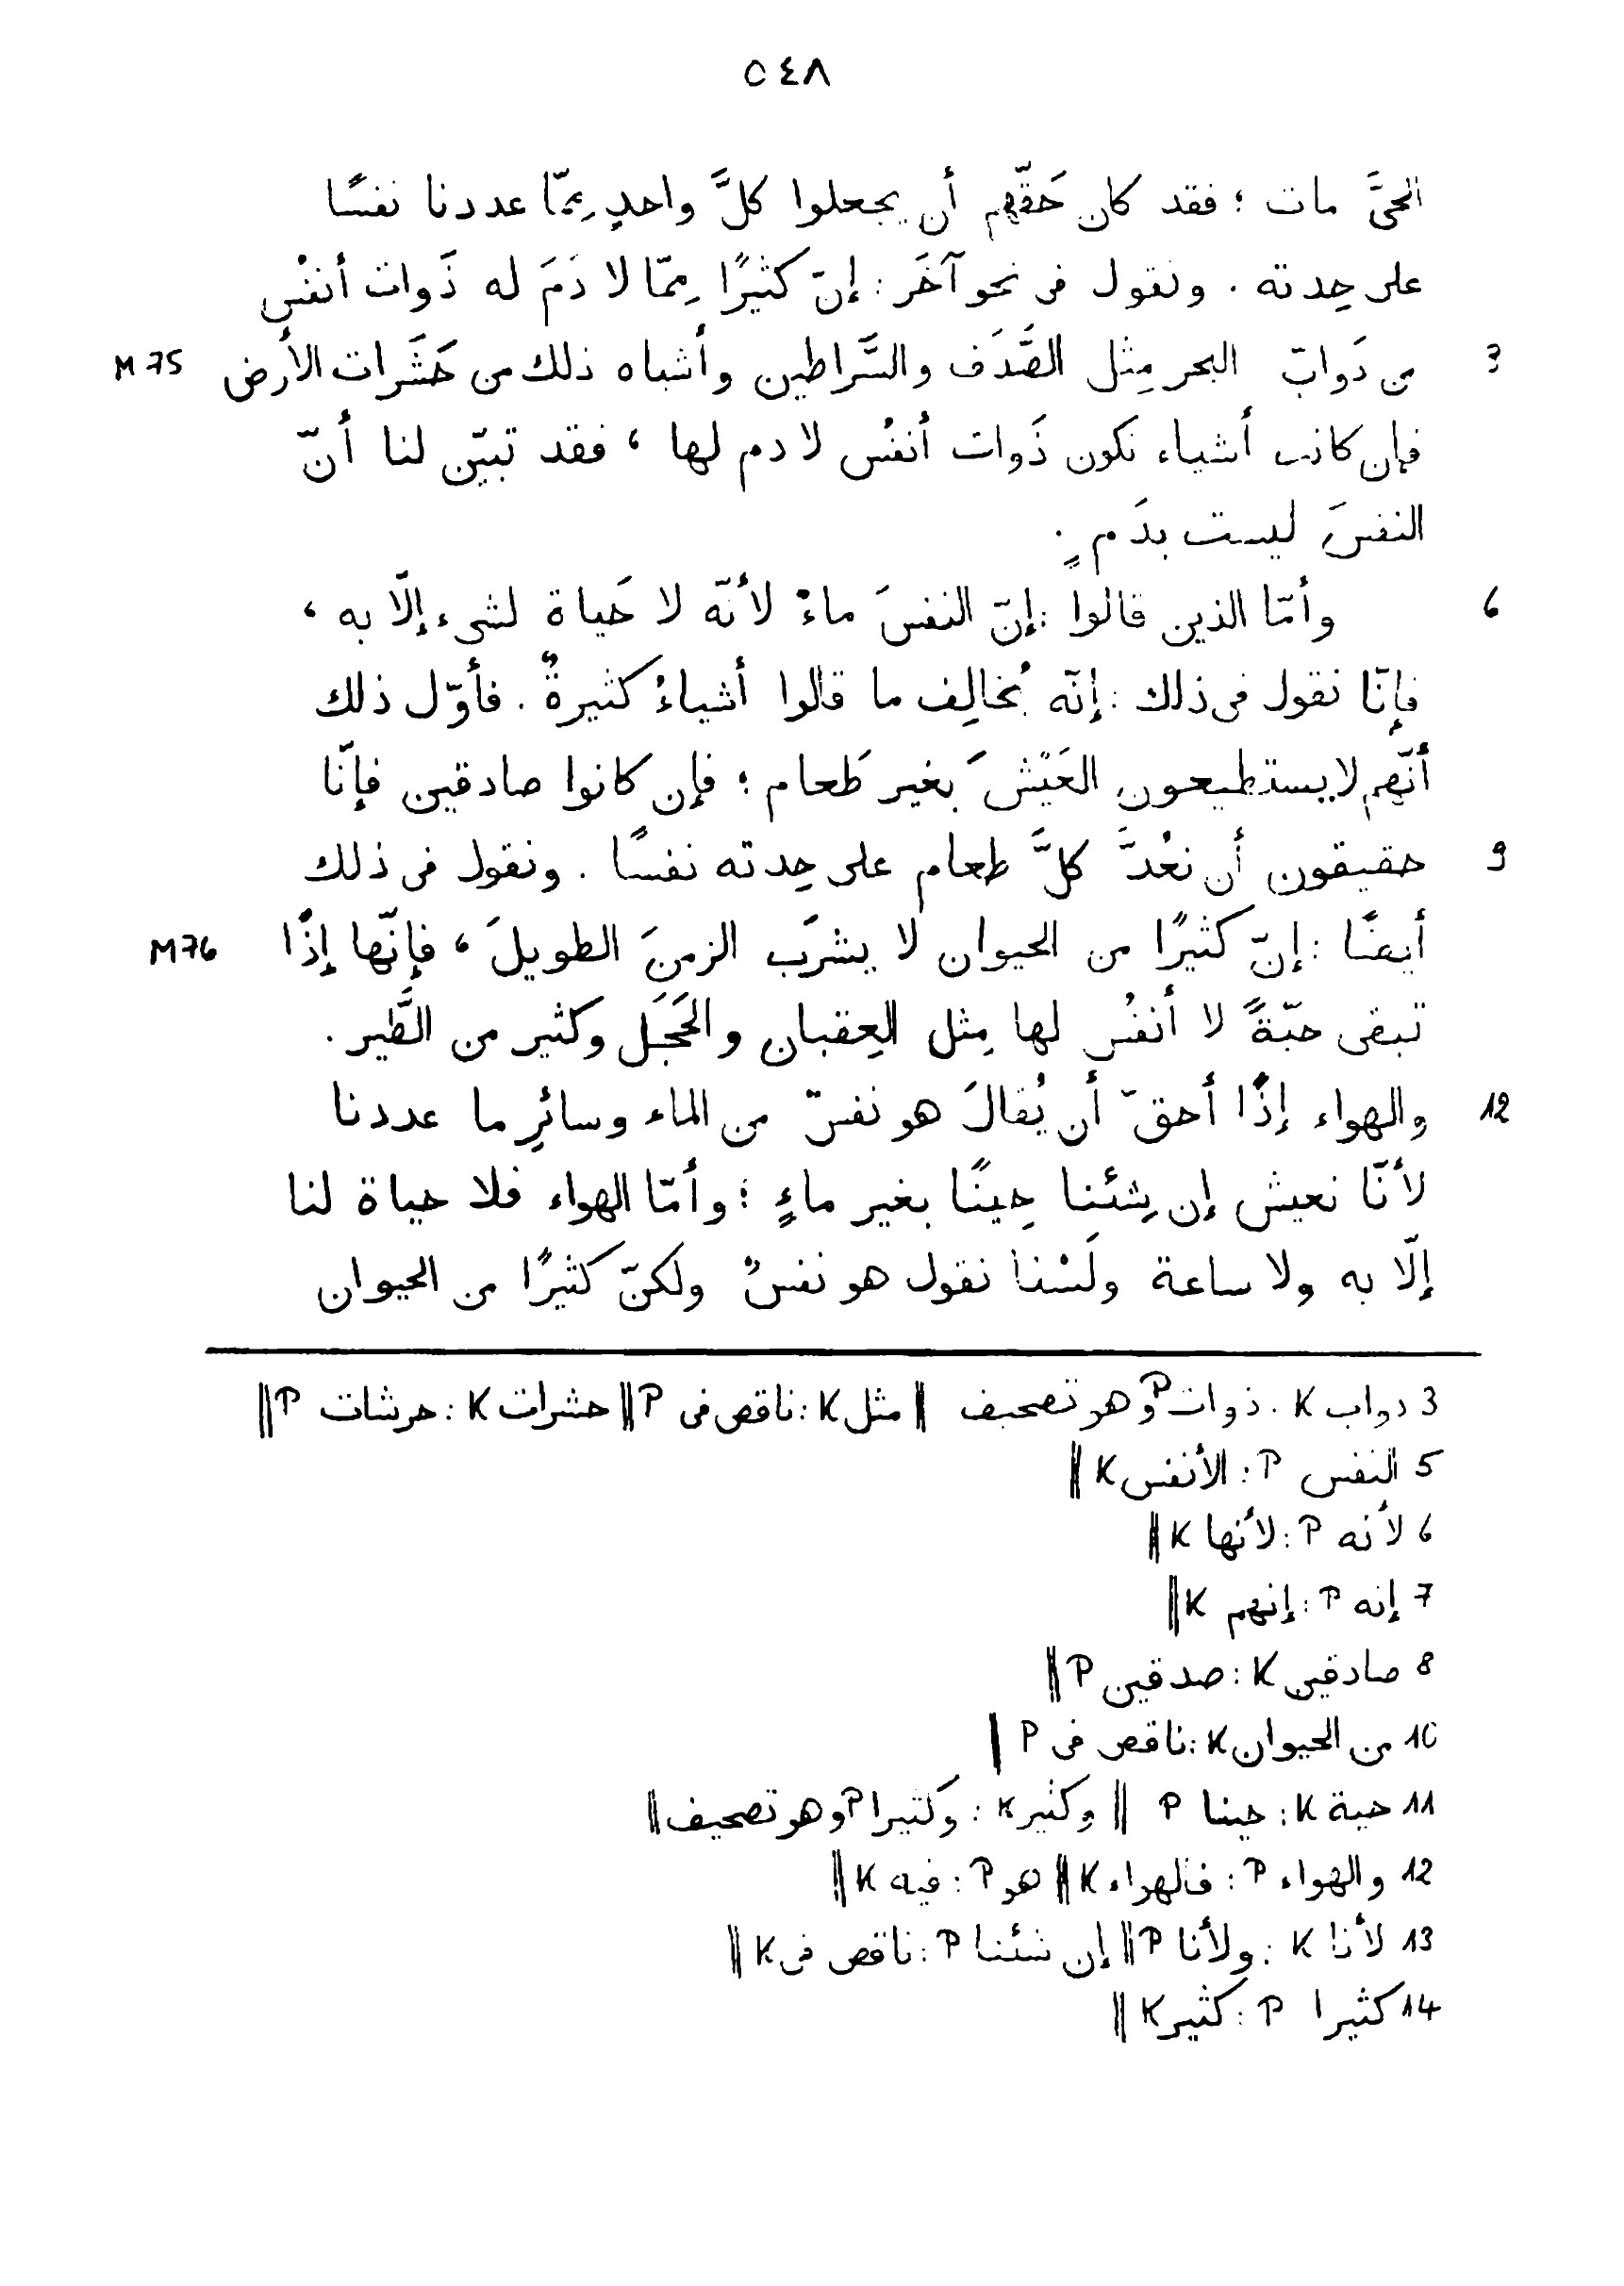 ٥٤٨
الحىَّ مات ؛ فقد كان حَقّهم أن يجعلوا كلَّ واحدٍ مِمّا عددنا نفسًا
على حِدته . ونقول فى نحو آخَر : إنّ كثيرًا مِمّا لا دَمَ له ذَوات أنفُس
3 من دَوابّ البحر مِثل الصَّدَف والسَّراطين وأشباه ذلك من حَشَرات الأرض M 75
فإن كانت أشياء تكون ذَوات أنفُس لا دم لها ، فقد تبيّن لنا أنّ
النفسَ ليست بدَمٍ .
6 وأمّا الذين قالوا : إنّ النفسَ ماءٌ لأنّه لا حَياة لشىء إلّا به ،
فإنّا نقول فى ذلك : إنّه يُخالِف ما قالوا أشياءُ كثيرةٌ . فأوّل ذلك
أنّهم لا يستطيعون العَيْشَ بغير طَعام ؛ فإن كانوا صادقين فإنّا
9 حقيقون أن نعُدَّ كلَّ طعام على حِدته نفسًا . ونقول فى ذلك
أيضًا : إنّ كثيرًا من الحيوان لا يشرَب الزمنَ الطويلَ ، فإنّها إذًا M 76
تبقى حيّةً لا أنفُس لها مِثل العِقبان والحَجَل وكثير من الطَّير .
12 والهواء إذًا أحقّ أن يُقالَ هو نفسٌ من الماء وسائرِ ما عددنا
لأنّا نعيش إن شِئنا حِينًا بغير ماءٍ ؛ وأمّا الهواء فلا حياة لنا
إلّا به ولا ساعة ولَسْنا نقول هو نفسٌ ولكنّ كثيرًا من الحيوان
3 دواب K . ذوات P وهو تصحيف || مثل K : ناقص فى P || حشرات K : حرشات P ||
5 النفس P : الأنفس K ||
6 لأنه P : لأنها K ||
7 إنه P : إنهم K ||
8 صادقين K : صدقين P ||
10 من الحيوان K : ناقص فى P |
11 حية K : حينا P || وكثير K : وكثيرا P وهو تصحيف ||
12 والهواء P : فالهواء K || هو P : فيه K ||
13 لأنا K : ولأنا P || إن شئنا P : ناقص فى K ||
14 كثيرا P : كثير K ||